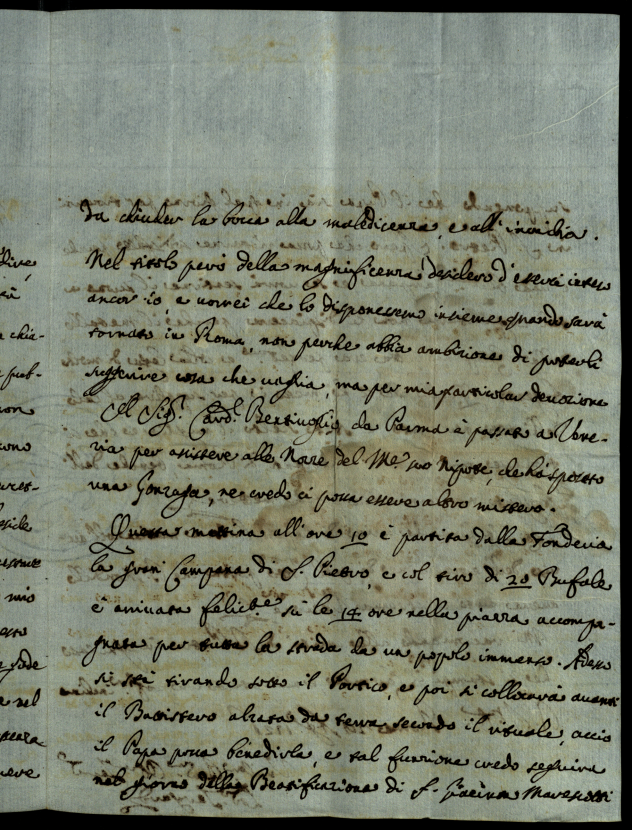 da chiuder la bocca alla maldicenza, e all'invidia.
Nel titolo però della magnificenza desidero d'esserci inteso
ancor io, e vorrei che lo disponessemo insieme quando sarà
tornato in Roma, non perche abbia ambizione di poterli
suggerire cosa che vaglia, ma per mia particolar devozione
Il Sig.r Card.l Bentivoglio da Parma è passato a Vene-
zia per assistere alle Nozze del M.e suo Nipote, che hà sposato
una Gonzaga, ne credo ci possa essere altro mistero.
Questa mattina all'ore 10 è partita dalla Fonderia
la gran Campana di S. Pietro, e col tiro di 20 Bufale
è arrivata felic.te sù le 14 ore nella piazza accompa-
gnata per tutta la strada da un popolo immenso. Adesso
si stà tirando sotto il Portico, e poi si collocarà avanti
il Battistero alzata da terra secondo il rituale, acciò
il Papa possa benedirla, e tal funzione credo seguirà
nel giorno della Beatificazione di S. Giacinta Marescotti
chia-
pub-
non
mio
nel